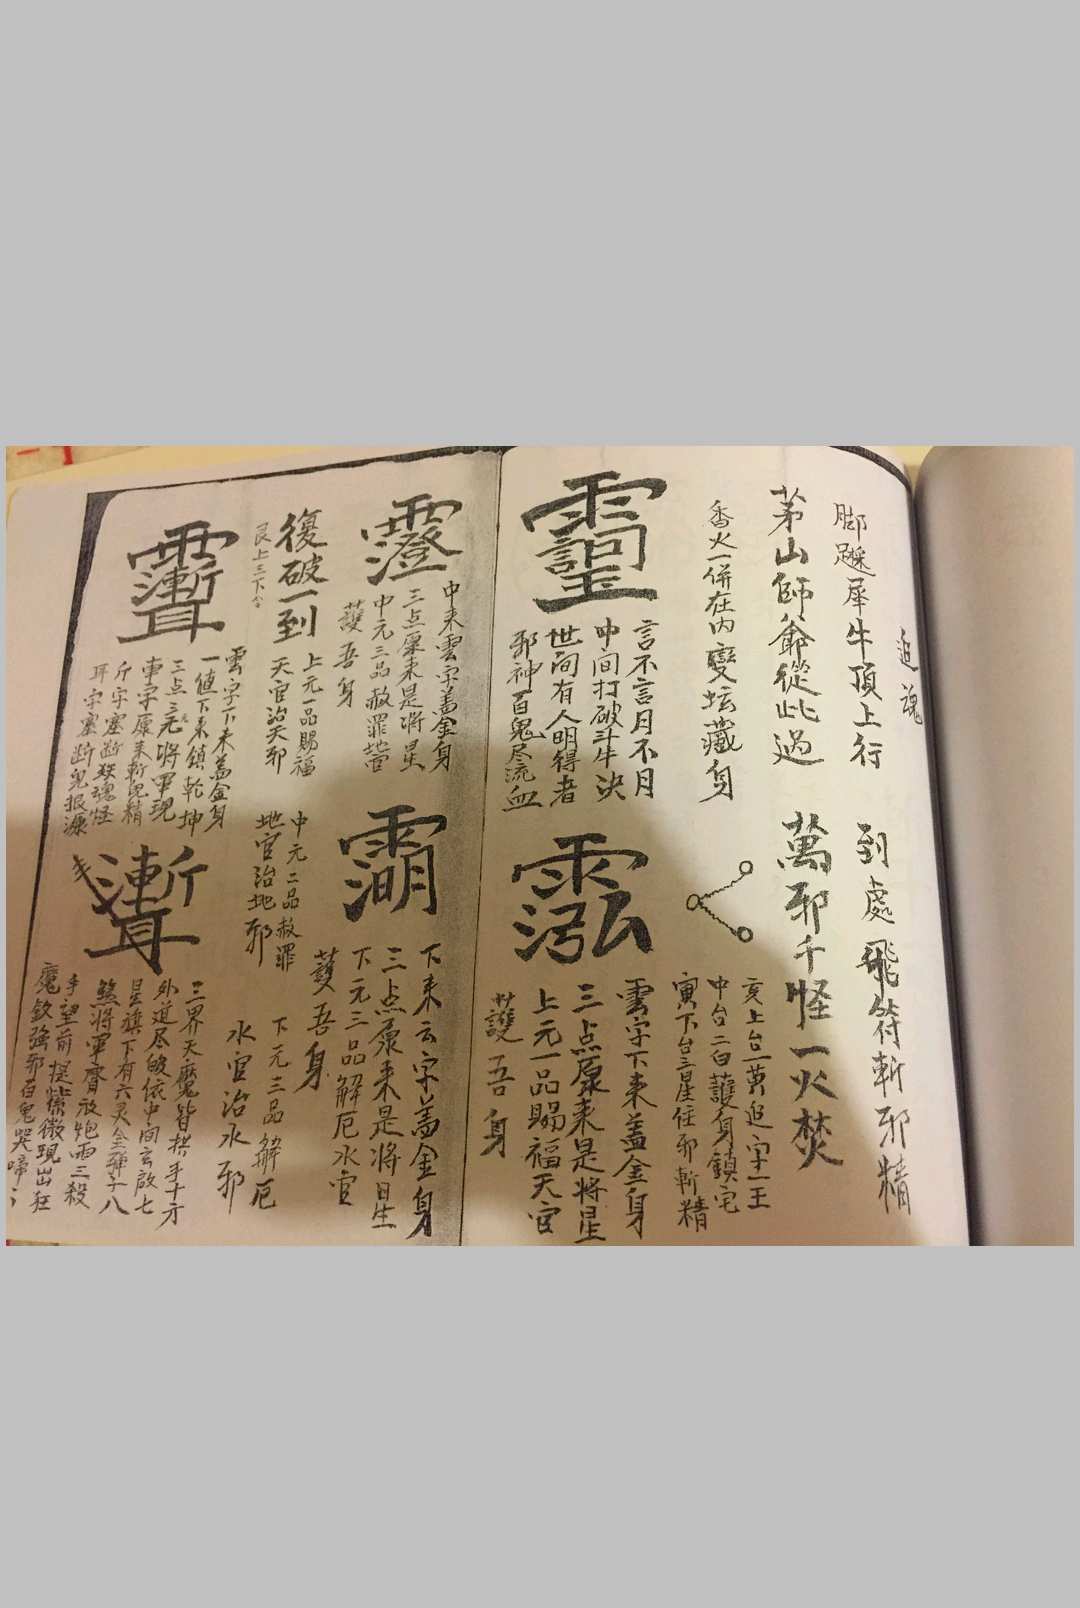 追魂
脚躧犀牛頂上行
到處飛符斬邪精
茅山師爺從此過
萬邪千怪一火焚
香火一併在内變坛藏身
亥上台一黄追字一王
中台二白護身鎮宅
寅下台三星任邪斬精
言不言日不月
中间打破斗牛決
世间有人明得者
邪神百鬼尽流血
雲字下来盖金身
三点原来是将星
上元一品賜福天官
護吾身
中来雲字盖金身
三点原来是将星
中元三品赦罪地官
護吾身
下来云字盖金身
三点原来是将日生
下元三品解厄水官
護吾身
復破一到
艮上三下
上元一品賜福
天官治天邪
中元二品赦罪
地官治地邪
下元三品解厄
水官治水邪
雲字下来盖金身
一值下来鎮乾坤
三点三元将軍現
車字原来斬鬼精
斤字塞断妖魂怪
耳字塞断鬼根源
三界天魔皆拱手十方
外道尽皈依中间玄啟七
星旗下有六灵金弹子八
煞将軍齊放炮雨三殺
手望前提紫微現出狂
魔欽強邪百鬼哭啼